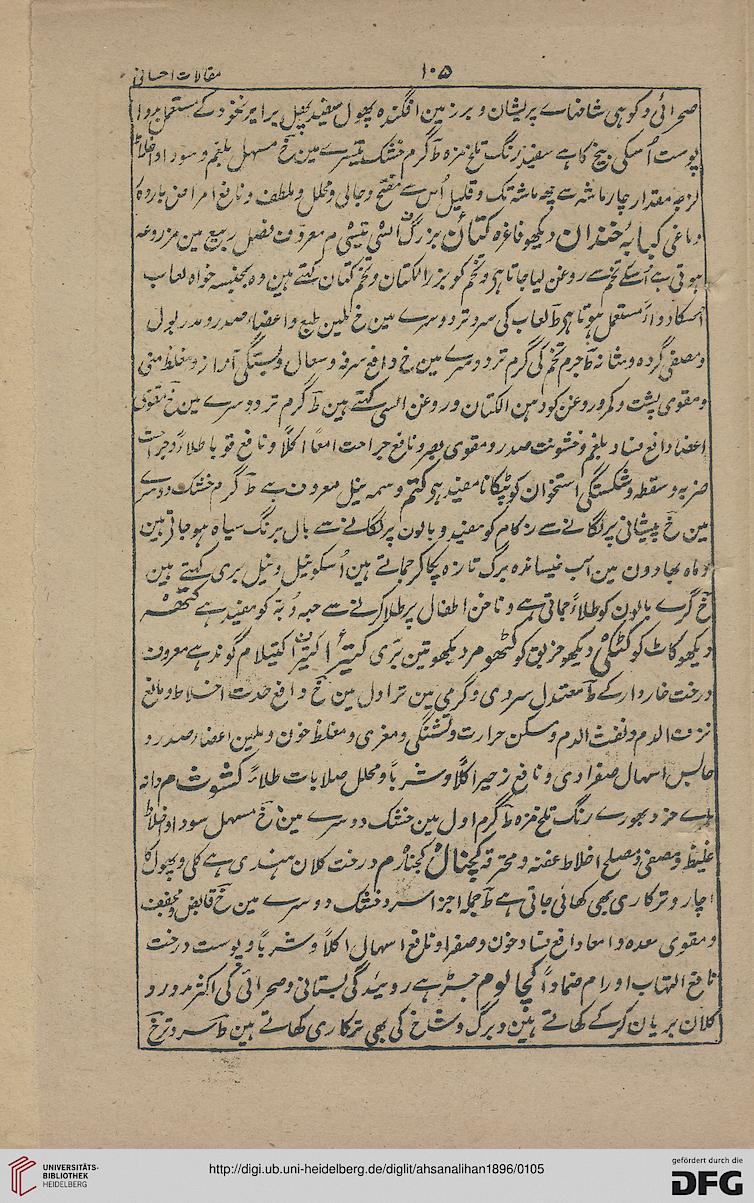 ۱۰۵ مقالات احسانی
صحرائی و کوہی شاخہاے پریشان و بر زمین افگندہ پھول سفید پھل برابر نخود کے مستعمل ہوا
پوست اُسکی بیخ کا ہے سفید رنگ تلخ مزہ ط گرم خشک تیسرے مین خ مسہل بلغم و سودا و اخلاط
لزجہ مقدار چار ماشہ سے چھ ماشہ تک و قلیل اُس سے مفتح و جالی و محلل و ملطف و نافع امراض باردہ
دماغی کبابہ خندان دیکھو فاغرہ کتان بزرگ السی تیسی م معروف فصل ربیع مین مزروعہ
ہوتی ہے اُسکے تخم سے روغن لیا جاتا ہی و تخم کو بزر الکتان و تخم کتان کہتے ہین وہ بجنسہ خواہ لعاب
اُسکا دواءً مستعمل ہوتا ہی ط لعاب کی سرد تر دوسرے مین خ ملین طبع و اعضاء صدر و مدر بول
و مصفی گردہ و مثانہ ط جرم تخم کی گرم تر دوسرے مین خ دافع سرفہ و سعال و بستگی آواز و مغلظ منی
و مقوی پشت و کمر و روغن کو دہن الکتان و روغن السی کہتے ہین ط گرم تر دوسرے مین خ مقوی
اعضا دافع فساد بلغم و خشونت صدر و مقوی بصر و نافع جراحت امعا اکلاً و نافع قوبا طلاءً و جراحت
ضربہ و سقطہ و شکستگی استخوان کو ٹپکانا مفید ہی کتم وسمہ نیل معروف ہے ط گرم خشک دوسرے
مین خ پیشانی پر لگانے سے زکام کو مفید و بالون پر لگانے سے بال برنگ سیاہ ہو جاتے ہین
و ماہ بھادون مین آب خیساندہ برگ تازہ پکا کر جماتے ہین اُسکو نیل و نیل بری کہتے ہین
خ گرے بالون کو طلاءً جماتی ہے و ناخن اطفال پر طلا کرنے سے حبہ دبہ کو مفید ہے کتھہ
دیکھو کاٹ کو کٹکی دیکھو خربق کو کٹھومر دیکھو تین بری کتیرا اکتیرن اکتیلا م گوند ہے معروف
درخت خاردار کے ط معتدل سردی و گرمی مین تر اول مین خ دافع حدت اخلاط و مانع
نزف الدم و نفث الدم و مسکن حرارت و تشنگی و مغری و مغلظ خون و ملین اعضاء صدر و
حابس اسہال صفراوی و نافع زحیر اکلاً و شرباً و محلل صلابات طلاءً کشوث م دانہ
ہاے خرد بھورے رنگ تلخ مزہ ط گرم اول مین خشک دوسرے مین خ مسہل سودا و اخلاط
غلیظ و مصفی و مصلح اخلاط عفنہ و محرقہ کچنال کچنار م درخت کلان ہندی ہے کلی و پھول کا
اچار و ترکاری بھی کھائی جاتی ہے ط جملہ اجزا سرد و خشک دوسرے مین خ قابض و مجفف
و مقوی معدہ و امعا دافع فساد خون و صفرا و نافع اسہال اکلاً و شرباً و پوست درخت
نافع التہاب اورام ضماداً کچالو م جڑ ہے روئیدگی بستانی و صحرائی کی اکثر مدور و
کلان بریان کر کے کھاتے ہین و برگ و شاخ کی بھی ترکاری کھاتے ہین ط سرد تر خ
UNIVERSITÄTS-
BIBLIOTHEK
HEIDELBERG
http://digi.ub.uni-heidelberg.de/diglit/ahsanalihan1896/0105
gefördert durch die
DFG